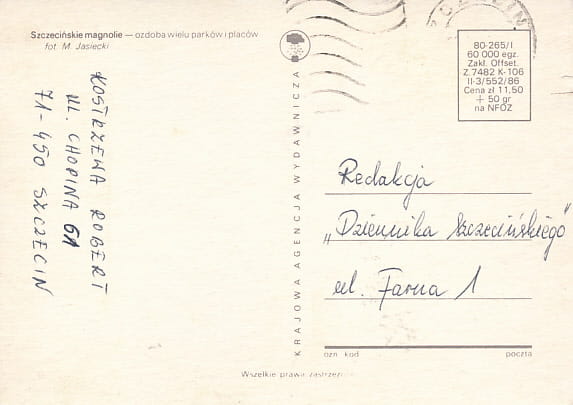 Szczecińskie magnolie — ozdoba wielu parków i placów
fot M. Jasiecki
KOSTRZEWA ROBERT
UL. CHOPINA 61
71-450 SZCZECIN
KRAJOWA AGENCJA WYDAWNICZA
80-265/I
60 000 egz.
Zakł. Offset.
Z. 7482 K-106
II-3/552/86
Cena zł 11,50
+ 50 gr
na NFOZ
Redakcja
„Dziennika Szczecińskiego”
ul. Farna 1
ozn. kod
poczta
Wszelkie prawa zastrzeż